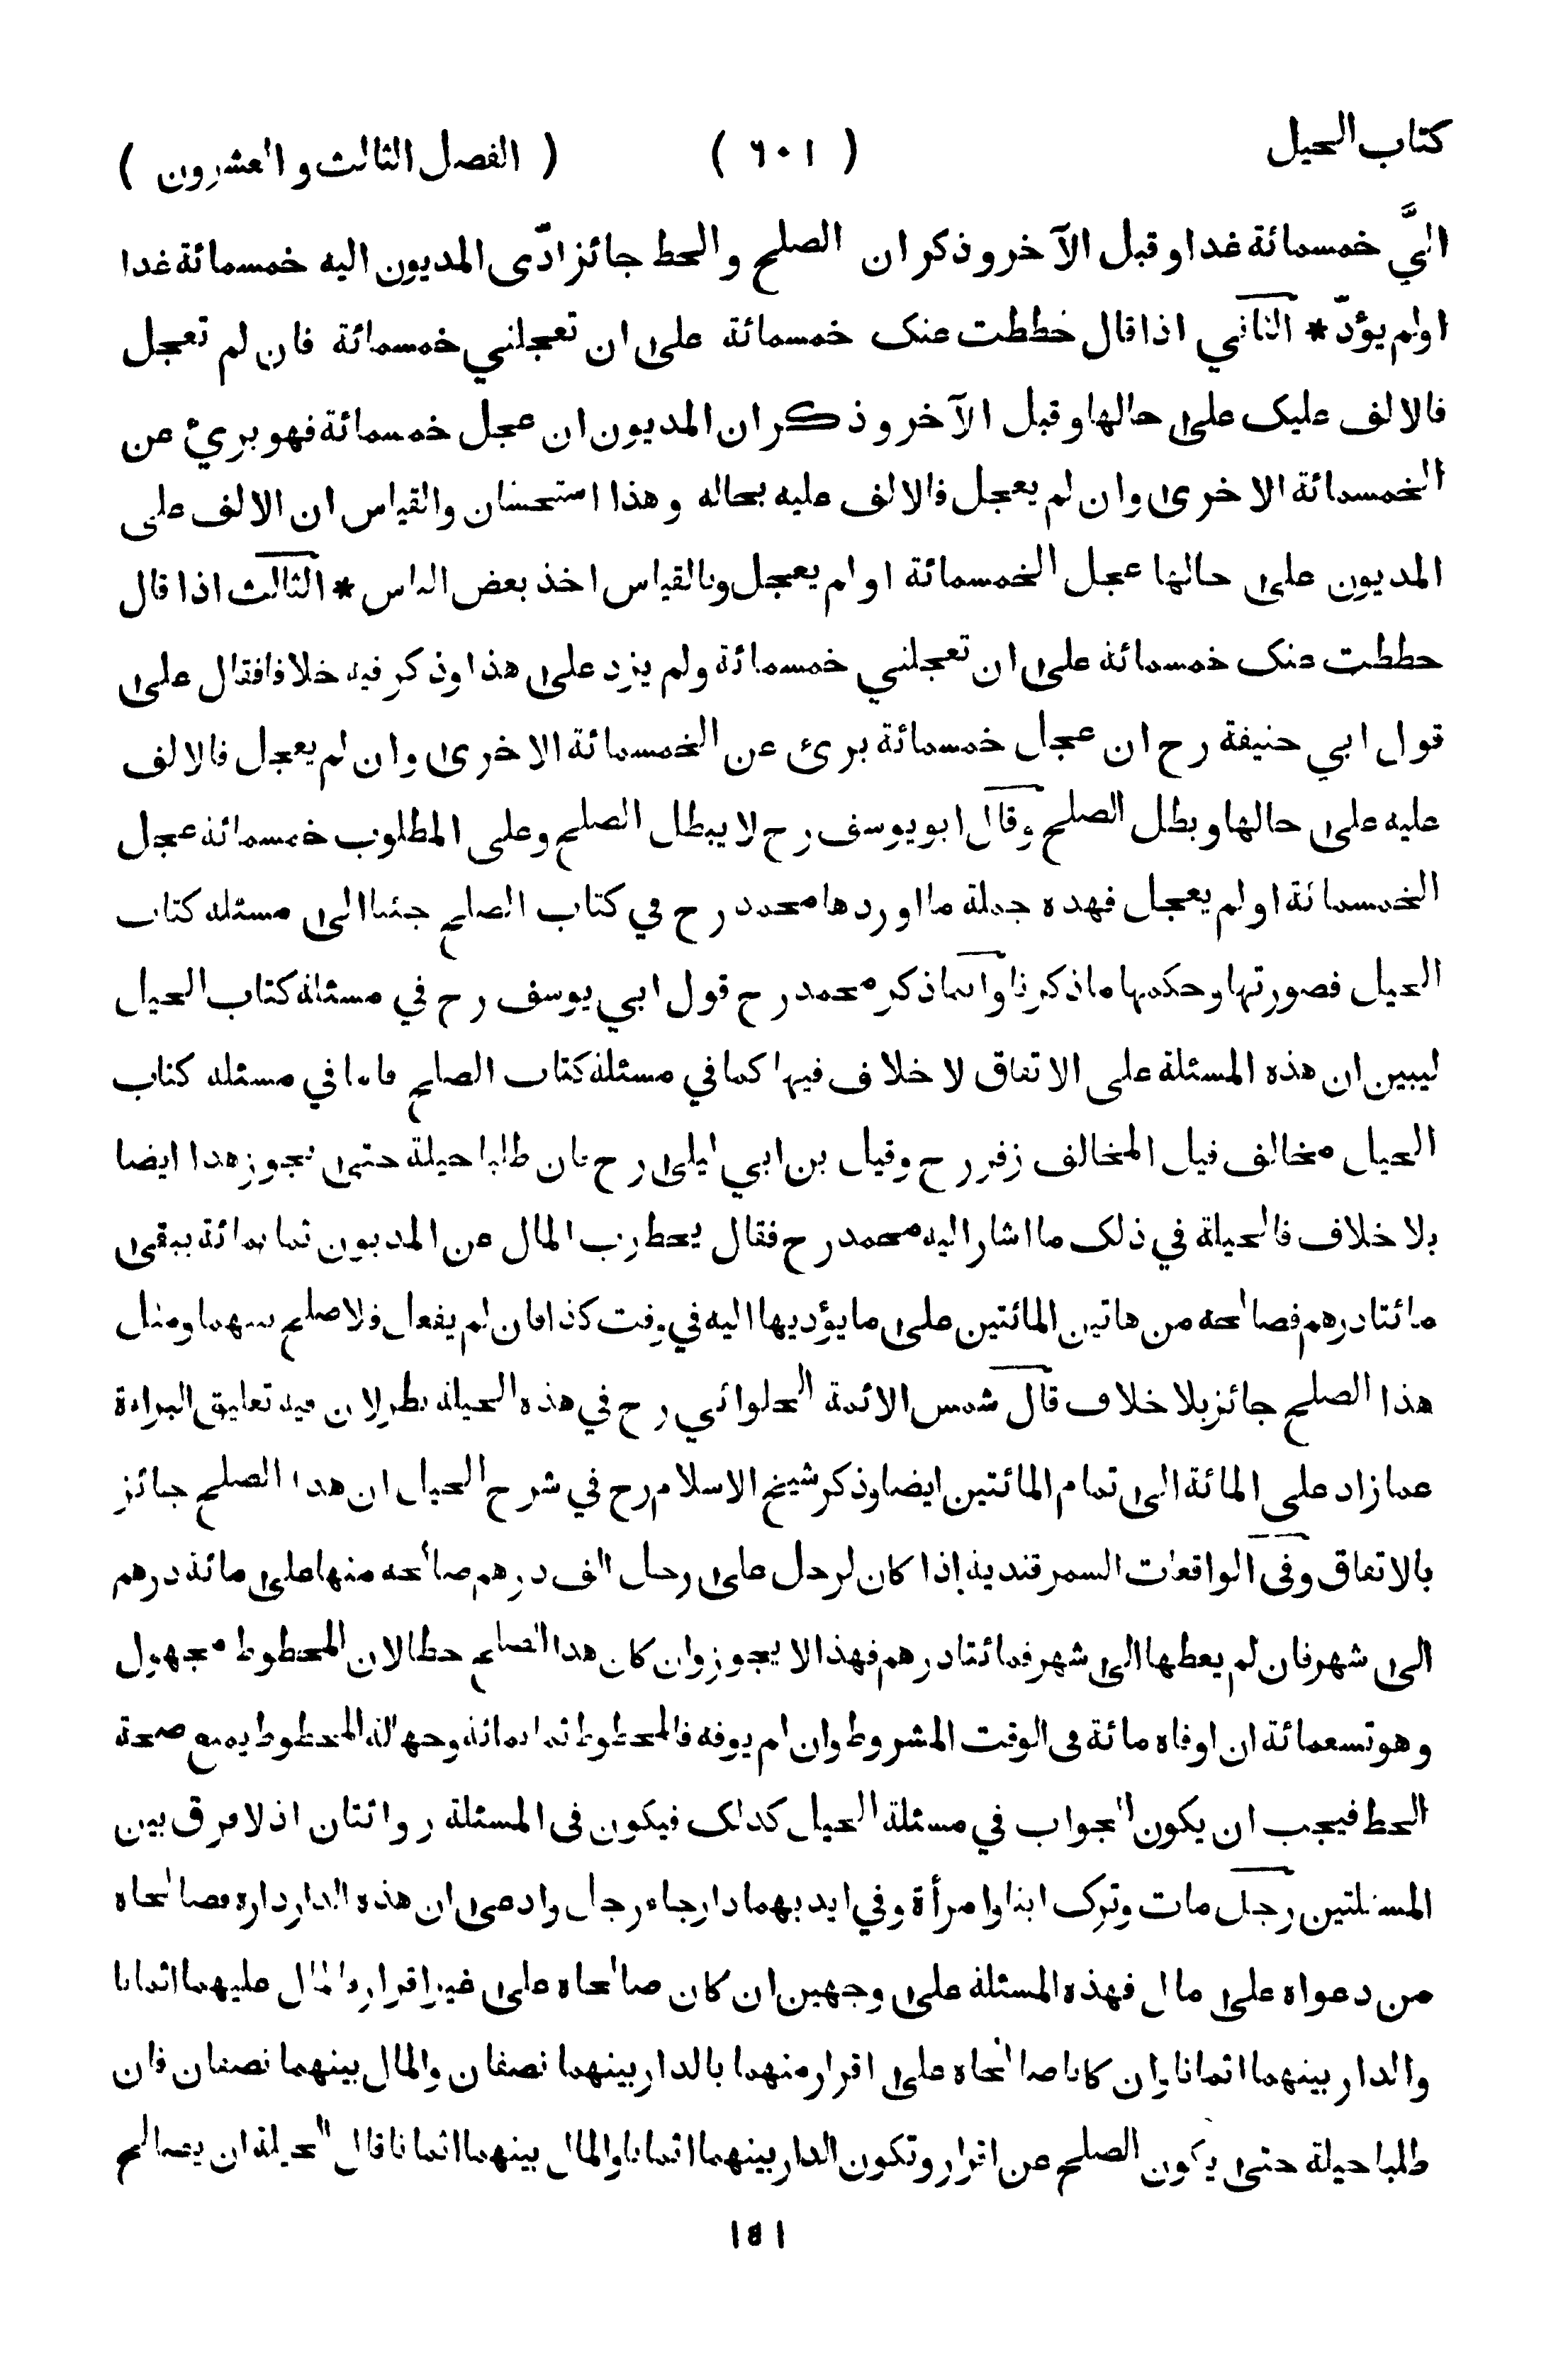 كتاب الحيل ( ٦٠١ ) ( الفصل الثالث والعشرون )
اليَّ خمسمائة غدا وقبل الآخر وذكر ان الصلح والحط جائز ادّى المديون اليه خمسمائة غدا
اولم يؤدّ * الثاني اذا قال حططت عنك خمسمائة على ان تعجلني خمسمائة فان لم تعجل
فالالف عليك على حالها وقبل الآخر وذكر ان المديون ان عجل خمسمائة فهو بريٌ عن
الخمسمائة الاخرى وان لم يعجل فالالف عليه بحاله وهذا استحسان والقياس ان الالف على
المديون على حالها عجل الخمسمائة او لم يعجل وبالقياس اخذ بعض الناس * الثالث اذا قال
حططت عنك خمسمائة على ان تعجلني خمسمائة ولم يزد على هذا وذكر فيه خلافا فقال على
قول ابي حنيفة رح ان عجل خمسمائة برئ عن الخمسمائة الاخرى وان لم يعجل فالالف
عليه على حالها وبطل الصلح وقال ابو يوسف رح لا يبطل الصلح وعلى المطلوب خمسمائة عجل
الخمسمائة او لم يعجل فهده جملة ما اوردها محمد رح في كتاب الصلح جئنا الى مسئلة كتاب
الحيل فصورتها وحكمها ما ذكرنا وانما ذكر محمد رح قول ابي يوسف رح في مسئلة كتاب الحيل
ليبين ان هذه المسئلة على الاتفاق لا خلاف فيها كما في مسئلة كتاب الصلح فاما في مسئلة كتاب
الحيل مخالف قيل المخالف زفر رح وقيل بن ابي ليلى رح فان طلبا حيلة حتى يجوز هدا ايضا
بلا خلاف فالحيلة في ذلك ما اشار اليه محمد رح فقال يحط رب المال عن المديون ثمانمائة يبقى
مائتا درهم فصالحه من هاتين المائتين على ما يؤديها اليه في وقت كذا فان لم يفعل فلا صلح بينهما ومثل
هذا الصلح جائز بلا خلاف قال شمس الائمة الحلوائي رح في هذه الحيلة نظر لان فيه تعليق البراءة
عما زاد على المائة الى تمام المائتين ايضا وذكر شيخ الاسلام رح في شرح الحيل ان هدا الصلح جائز
بالاتفاق وفى الواقعات السمرقندية إذا كان لرجل على رجل الف درهم صالحه منها على مائة درهم
الى شهر فان لم يعطها الى شهر فمائتا درهم فهذا لا يجوز وان كان هدا الصلح حطا لان المحطوط مجهول
وهو تسعمائة ان اوفاه مائة فى الوقت المشروط وان لم يوفه فالمحطوط ثمانمائة وجهالة المحطوط يمنع صحة
الحط فيجب ان يكون الجواب في مسئلة الحيل كدلك فيكون فى المسئلة روائتان اذ لا فرق بين
المسئلتين رجل مات وترك ابنا وامرأة وفي ايديهما دار جاء رجل وادعى ان هذه الدار داره فصالحاه
من دعواه على مال فهذه المسئلة على وجهين ان كان صالحاه على غير اقرار فالمال عليهما اثمانا
والدار بينهما اثمانا وان كانا صالحاه على اقرار منهما بالدار بينهما نصفان والمال بينهما نصفان فان
طلبا حيلة حتى يكون الصلح عن اقرار وتكون الدار بينهما اثمانا والمال بينهما اثمانا قال الحيلة ان يصالح